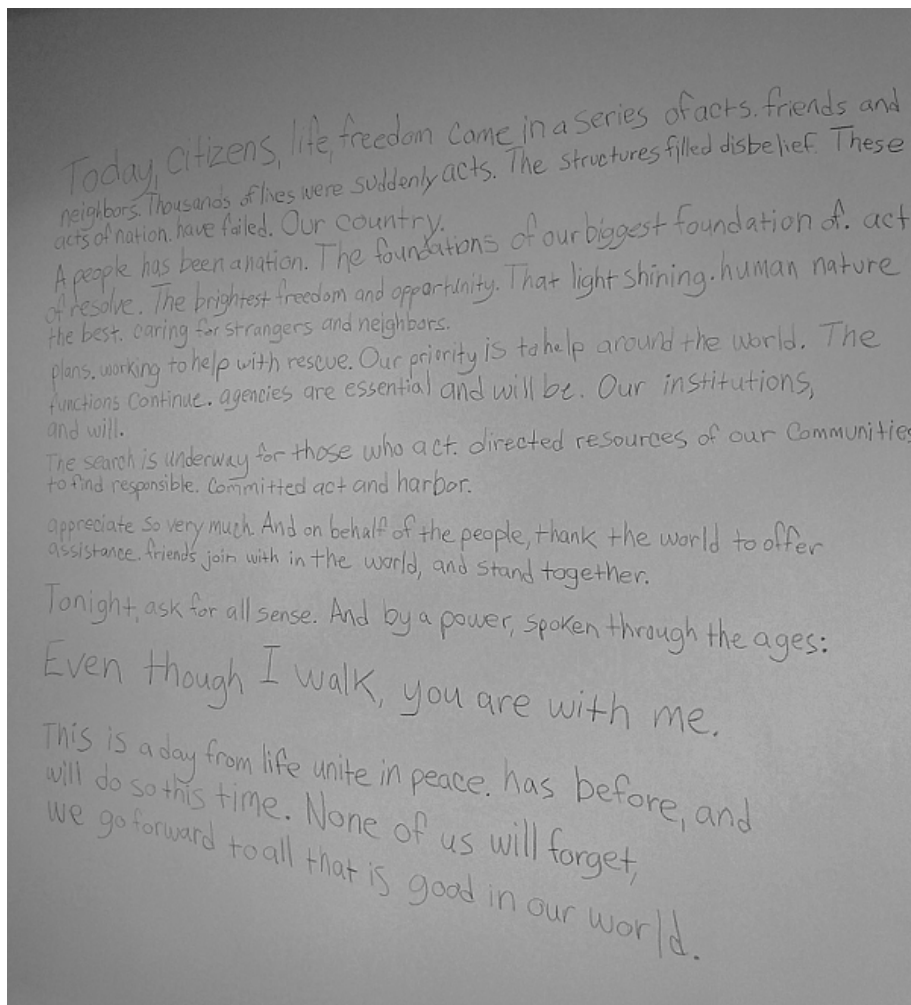 Today, citizens, life, freedom came in a series of acts. friends and
neighbors. Thousands of lives were suddenly acts. The structures filled disbelief. These
acts of nation. have failed. Our country.
A people has been a nation. The foundations of our biggest foundation of. act
of resolve. The brightest freedom and opportunity. That light shining. human nature
the best. caring for strangers and neighbors.
plans. working to help with rescue. Our priority is to help around the world. The
functions continue. agencies are essential and will be. Our institutions,
and will.
The search is underway for those who act. directed resources of our Communities
to find responsible. Committed act and harbor.
appreciate so very much. And on behalf of the people, thank the world to offer
assistance. friends join with in the world, and stand together.
Tonight, ask for all sense. And by a power, spoken through the ages:
Even though I walk, you are with me.
This is a day from life unite in peace. has before, and
will do so this time. None of us will forget,
we go forward to all that is good in our world.